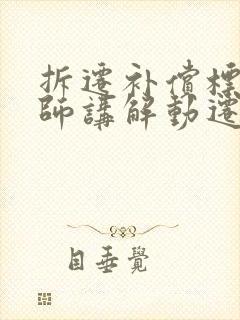 拆遷补償標
師講解動遷
目垂覺